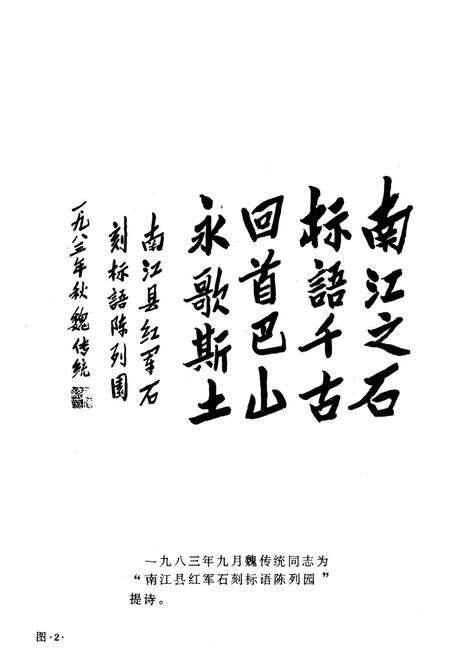 南江之石
标語千古
回首巴山
永歌斯土
南江县红军石
刻标語陈列園
一九八三年秋魏传统
一九八三年九月魏传统同志为
“南江县红军石刻标语陈列园”
提诗。
图·2·